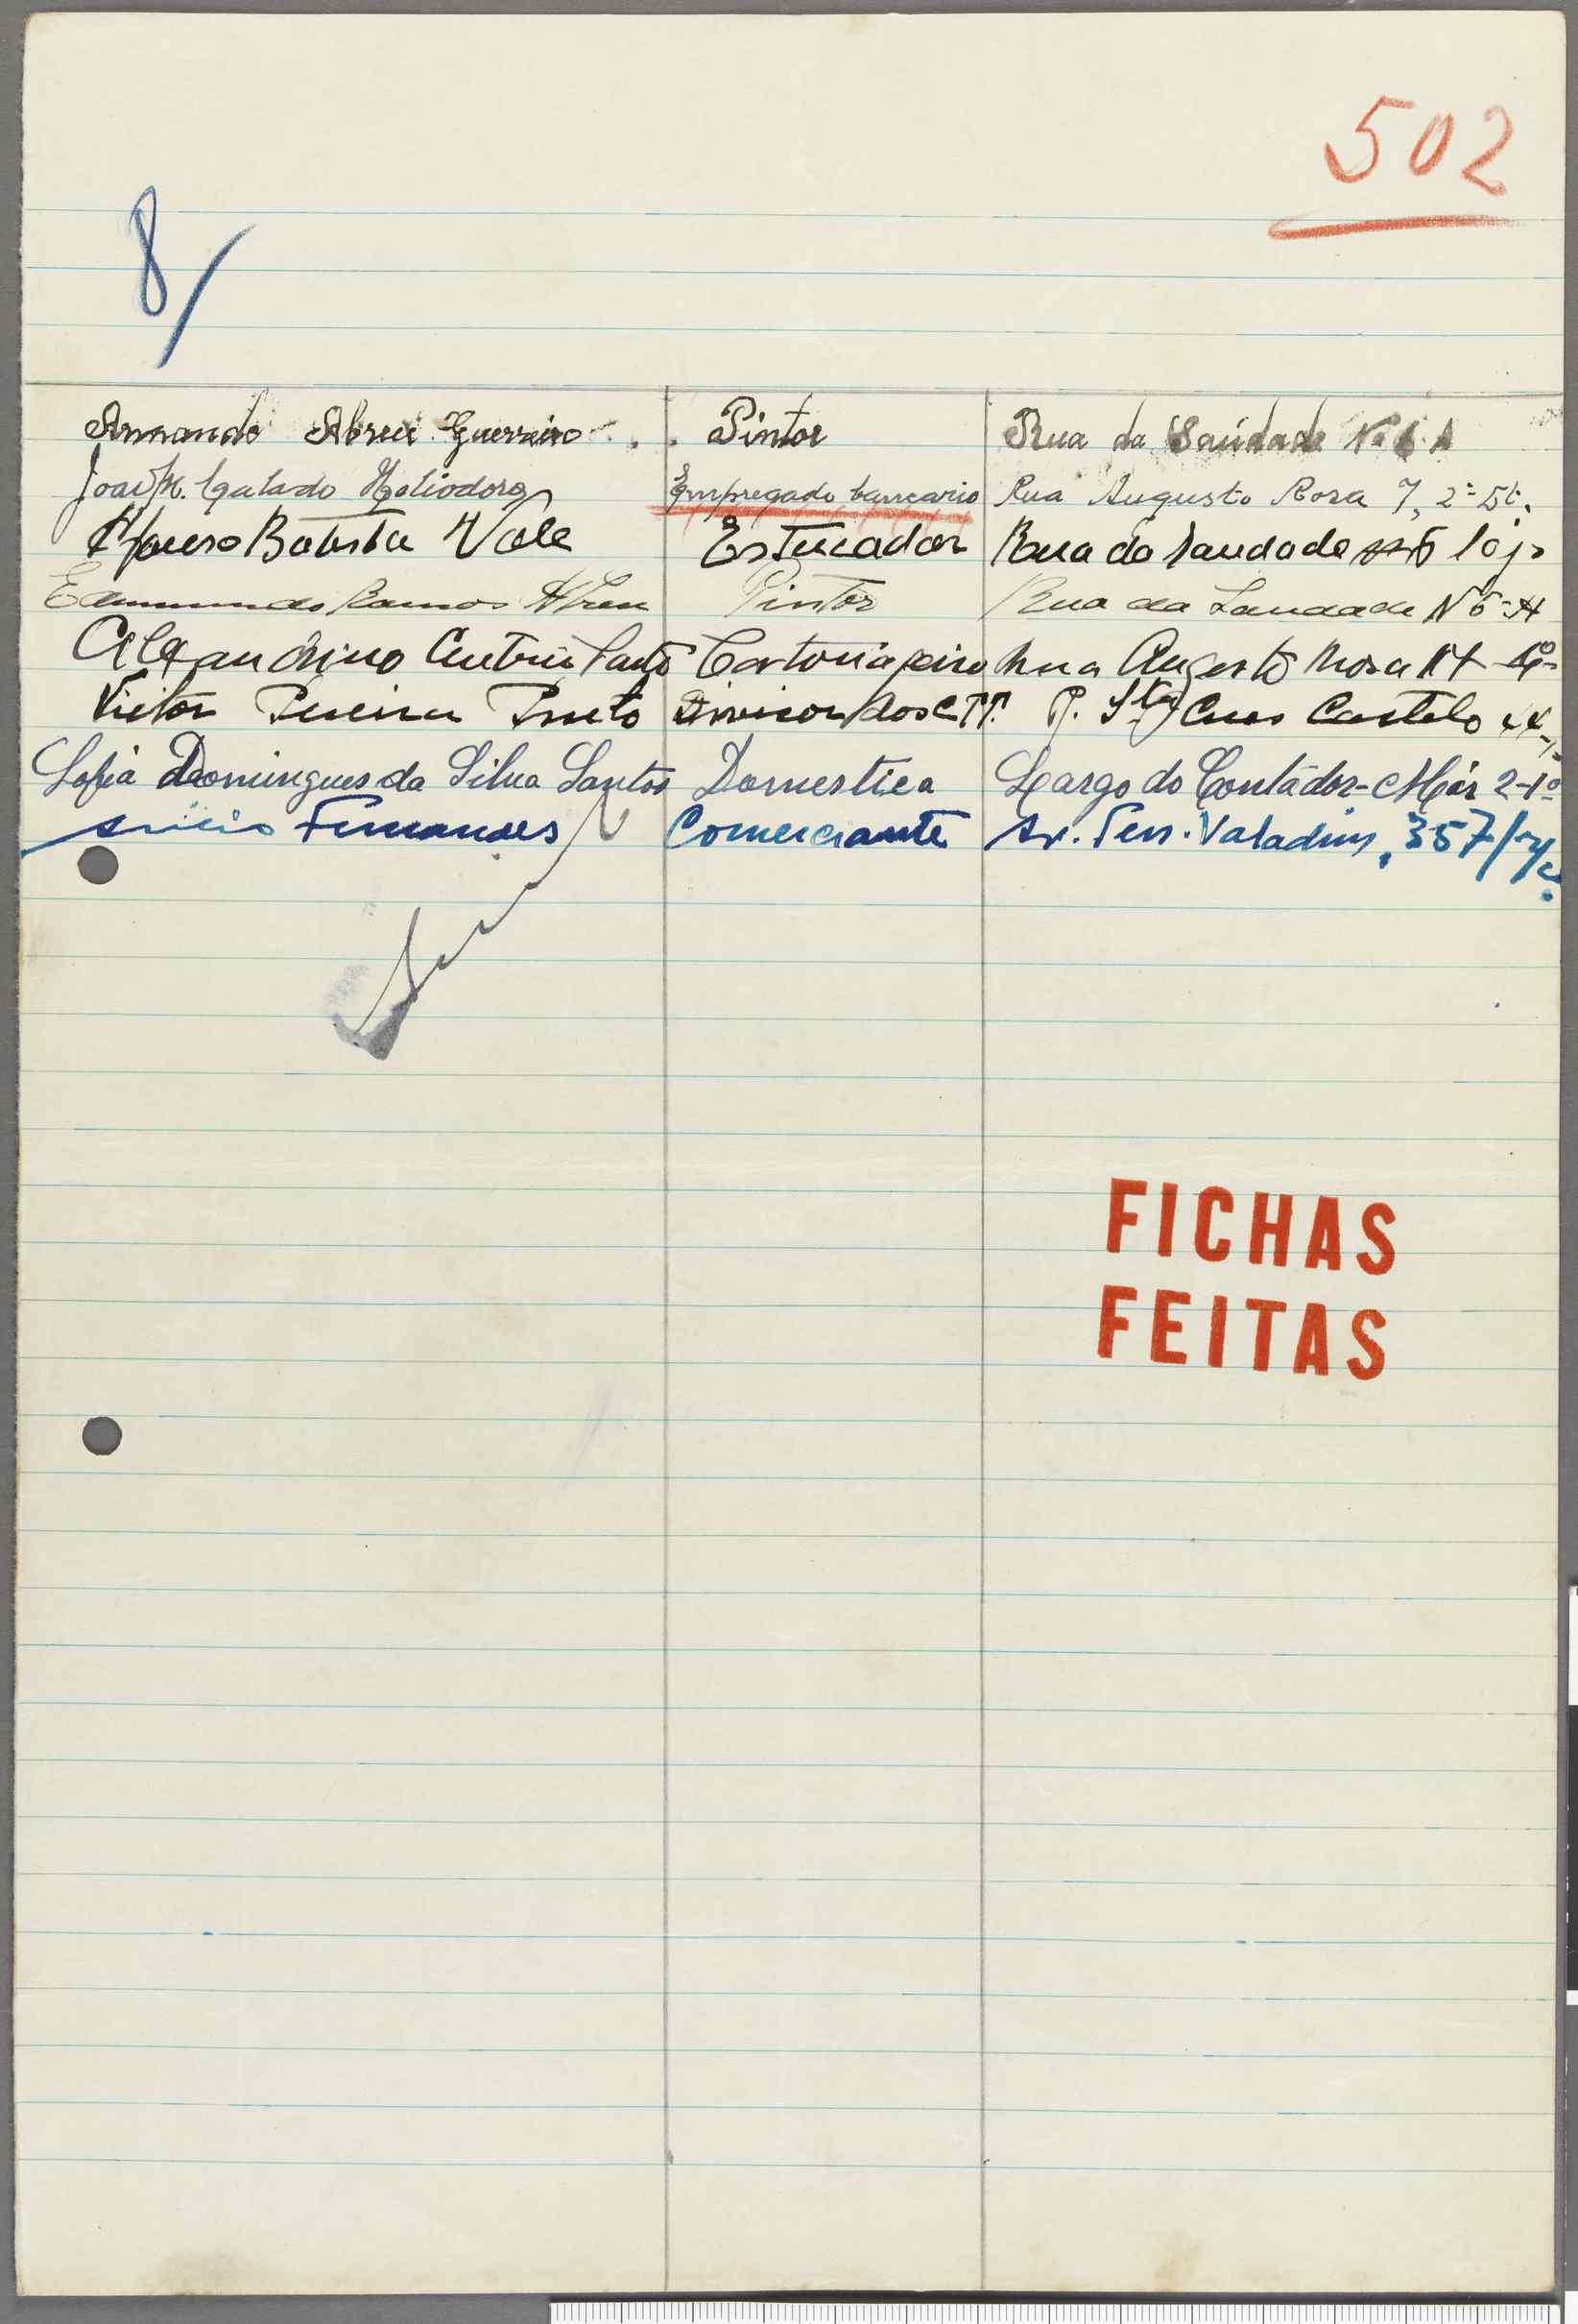 502
8/
Armando Abreu Guerreiro Pintor Rua da Saúdade Nº 6 A
João M. Calado Heliodoro Empregado bancario Rua Augusto Rosa 7, 2º Dt.
Batista Vale Estucador Rua da Saudade 6 loja
Edmundo Ramos Abreu Pintor Rua da Saudade Nº 6-A
Alexandrino Santos Rua Augusto Rosa
Victor Pereira Preto Divisor dos CTT. R. Sta Cruz Castelo
Sofia Domingues da Silva Santos Domestica Largo do Contador-Mór 2-1º
Fernandes Comerciante Av. Ten. Valadim, 357/r/c.
FICHAS
FEITAS